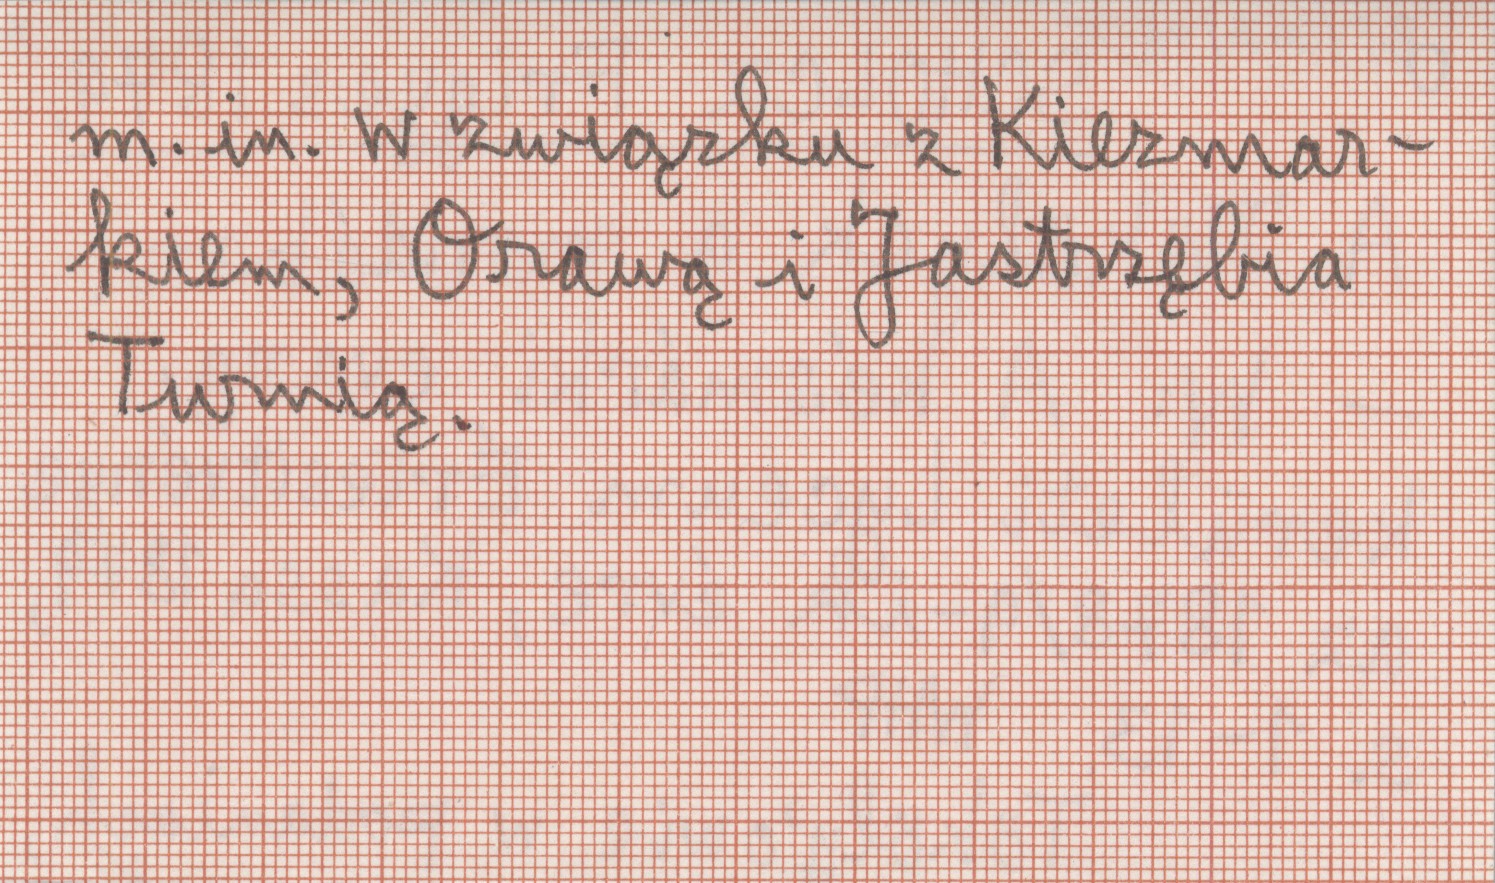 m. in. w związku z Kiezmar-
kiem, Orawą i Jastrzębia
Turnią.